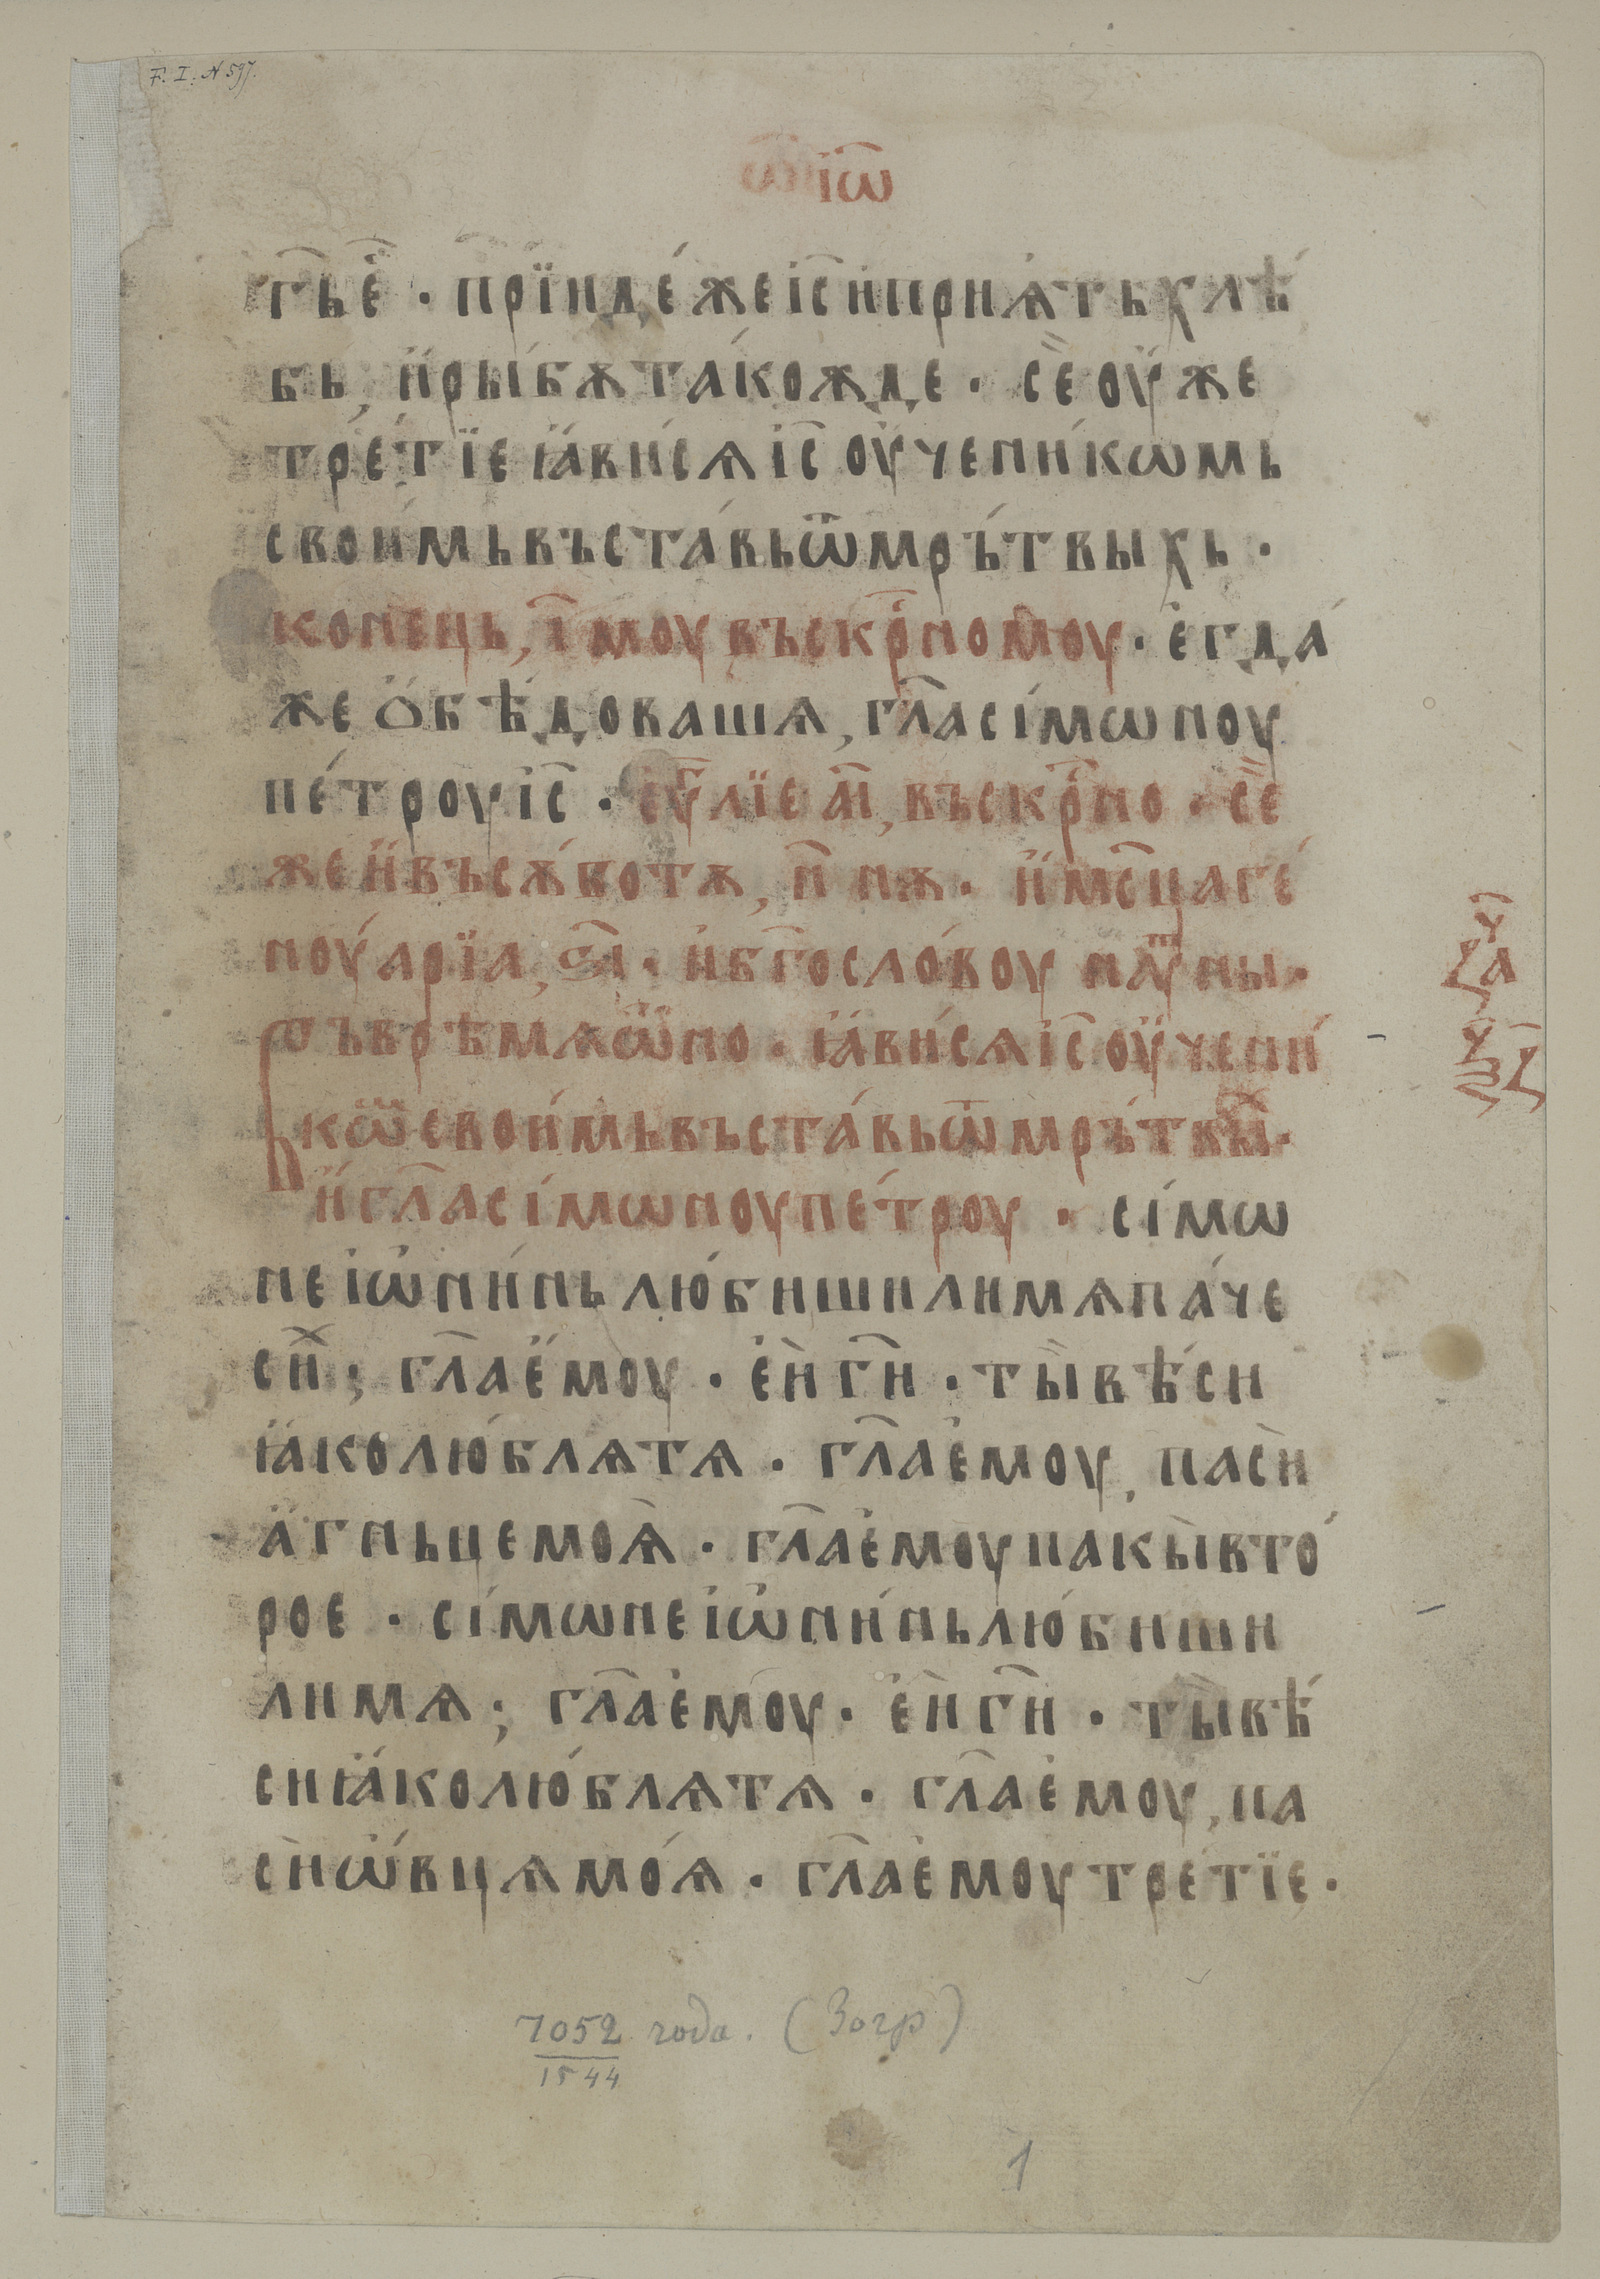 F. I. N 597.
і҆ѡ҃
гь҃ е҆҃ · прїиде́ же і҆с҃ и҆ прия́ть хлѣ́
бь, и҆ ры́бѫ та́кожде · се̏ оу҆же
тре́тїе ꙗ҆ви́сѧ і҆с҃ оу҆чени́кѡмь
свои́мь въста́вь ѿ мръ́твыхь ·
конець, і҃моу въскр҇номоу · е҆гда́
же ѻ҆бѣ́доваша, гл҃а сі́мѡноу
пе́троу і҆с҃ · еѵ҃лїе а҃і, въскр҇но · се̏
же и҆ въ сѫ́ботѫ, н҃ нѫ · и҆ мс҃ца ге́
ноуа́рїа, ѕ҃і · и҆ бг҃осло́воу на оу҆ ны ·
Въ врѣмѧ ѡ҆́но · ꙗ҆ви́сѧ і҆с҃ оу҆чени́
кѡⷨ свои́мь въста́вь ѿ мръ́твыⷯ ·
и҆ гл҃а сі́мѡноу пе́троу · сі́мѡ
не і҆ѡ҆ни́нь лю́биши ли мѧ па́че
сиⷯ; гл҃а е҆моу · е҆и̏ гн҃ · ты̏ вѣ́си
ꙗ҆́ко лю́блѧ тѧ · гл҃а е҆моу, паси̏
а҆́гньце моѧ̏ · гл҃а е҆моу пакы̏ вто́
рое · сі́мѡне і҆ѡ҆ни́нь лю́биши
ли мѧ; гл҃а е҆моу · е҆и̏ гн҃ · ты̏ вѣ́
си ꙗ҆́ко лю́блѧ тѧ · гл҃а е҆моу, па
си̏ ѡ҆́вцѧ мо́ѧ · гл҃а е҆моу тре́тїе ·
7052 года. (Зогр)
1544
1